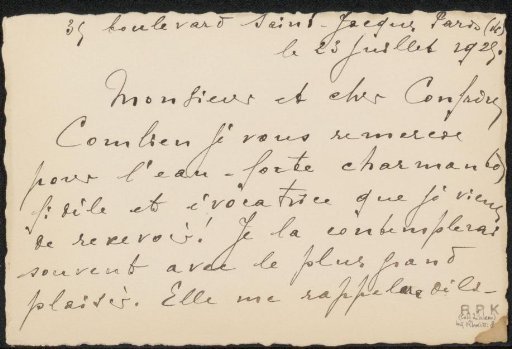 35 boulevard Saint-Jacques Paris
le 23 juillet 1925.
Monsieur et cher Confrère,
Combien je vous remercie
pour l'eau-forte charmante,
fidèle et évocatrice que je viens
de recevoir! Je la contemplerai
souvent avec le plus grand
plaisir. Elle me rappelera dils-
R.P.K